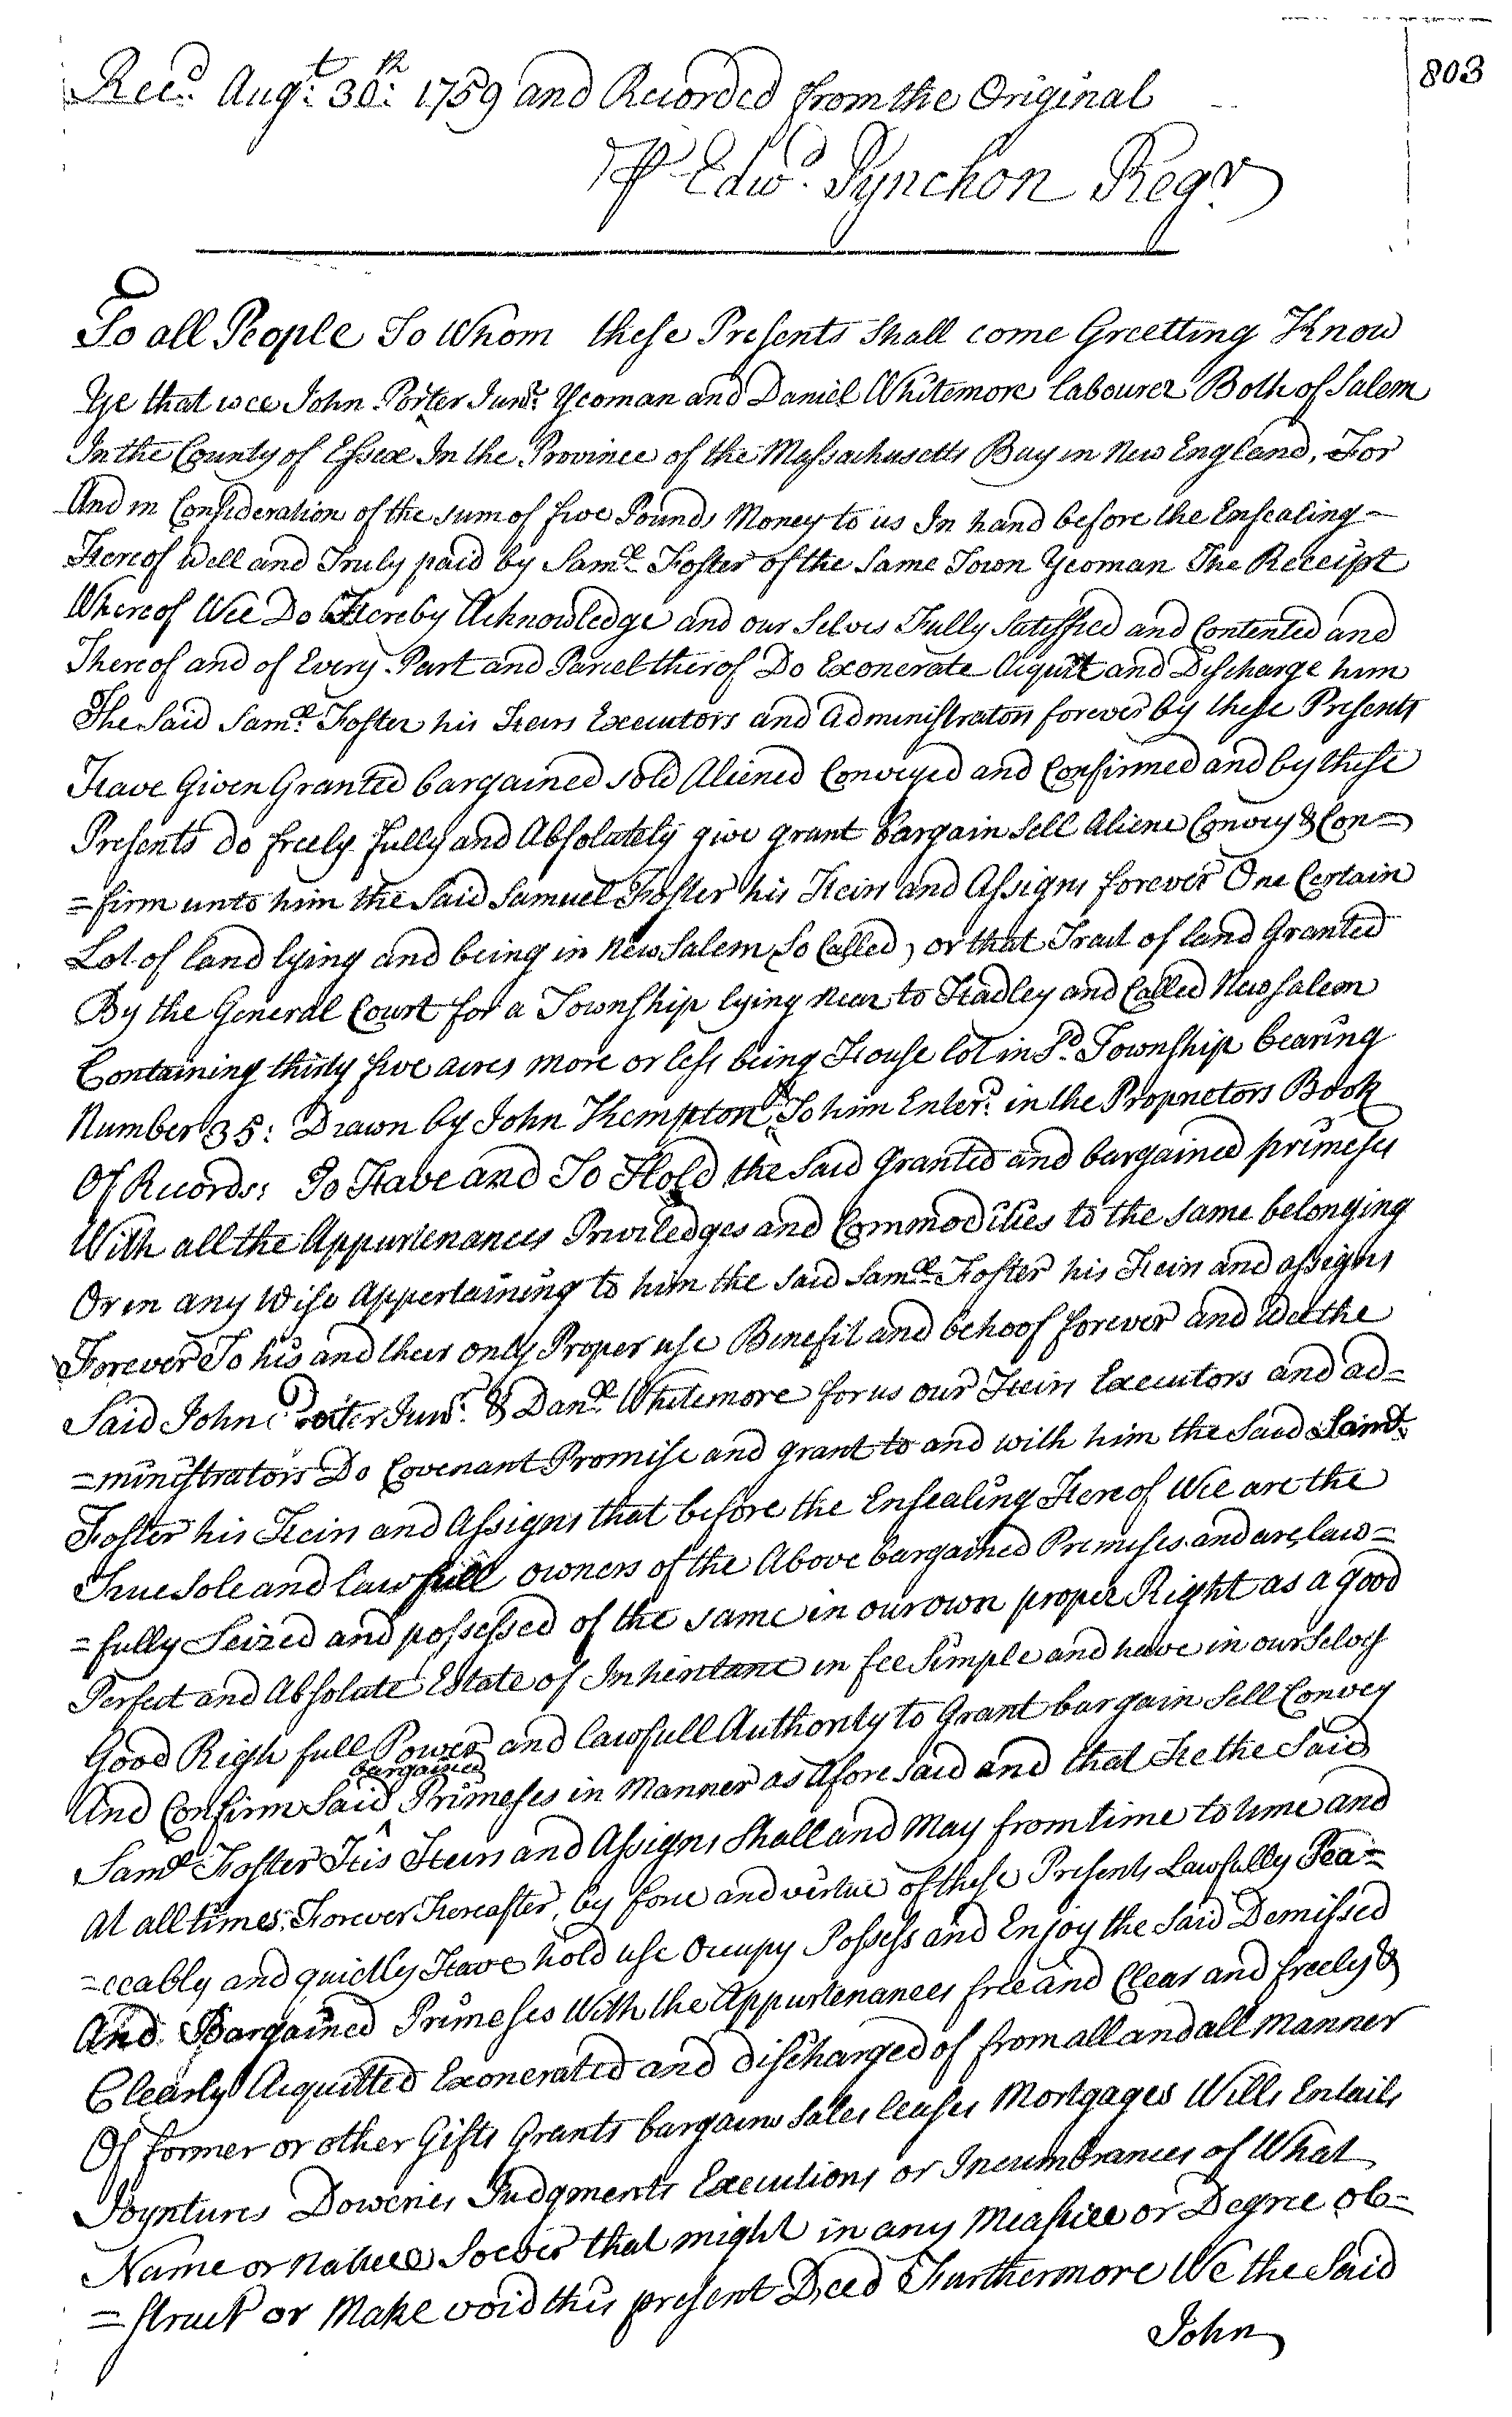 803
Recd. Augt. 30th. 1759 and Recorded from the Original
Pr Edwd. Pynchon Regr
To all People To Whom these Presents Shall come Greetting Know
Ye that wee John Porter Junr. Yeoman and Daniel Whitemore Labourer Both of Salem
In the County of Essex In the Province of the Massachusetts Bay in New England, For
And in Consideration of the sum of five Pounds Money to us In hand before the Ensealing
Hereof Well and Truly paid by Saml. Foster of the Same Town Yeoman The Receipt
Whereof Wee Do Hereby Acknowledge and our Selves Fully Satesfied and Contented and
Thereof and of Every Part and Parcel therof Do Exonerate Acquit and Discharge him
The Said Saml. Foster his Heirs Executors and Administrators forever by these Presents
Have Given Granted bargained sold Aliened Conveyed and Confirmed and by these
Presents do freely fully and Absolutely give grant bargain Sell Aliene Convey & Con=
=firm unto him the Said Samuel Foster his Heirs and Assigns forever One Certain
Lot of land lying and being in New Salem So Called, or that Tract of land Granted
By the General Court for a Township lying near to Hadley and Called New Salem
Containing thirty five acres more or less being House lot in Sd. Township bearing
Number 35: Drawn by John Kempton & To him Enterd. in the Proprietors Book
Of Records: To Have and To Hold the Said Granted and bargained primeses
With all the Appurtenances Priviledges and Commodities to the same belonging
Or in any Wise Appertaining to him the said Saml. Foster his Heirs and assigns
Forever To his and their only Proper use Benefit and behoof forever and Wee the
Said John Porter Junr. & Danl. Whitemore for us our Heirs Executors and ad=
=ministrators Do Covenant Promise and grant to and with him the Said Saml.
Foster his Heirs and Assigns that before the Ensealing Hereof Wee are the
True Sole and lawfull owners of the Above bargained Premises and are law=
=fully Seized and possessed of the same in our own proper Right as a good
Perfect and Absolute Estate of Inheritance in fee Simple and have in our Selves
Good Righ full Power and lawfull Authority to Grant bargain Sell Convey
And Confirm Said bargained Primeses in Manner as Afore Said and that He the Said
Saml Foster His Heirs and Assigns Shall and May from time to time and
At all times Forever Hereafter by force and virtue of these Presents Lawfully Pea=
=ceably and quietly Have hold use Occupy Possess and Enjoy the Said Demissed
And Bargained Primeses With the Appurtenances free and Clear and freely &
Clearly Acquitted Exonerated and discharged of from all and all manner
Of former or other Gifts Grants bargains Sales leases Mortgages Wills Entails
Joyntures Doweries Judgments Executions or Incumbrances of What
Name or nature Soever that might in any Measure or Degree ob=
=struct or Make void this present Deed Furthermore We the Said
John